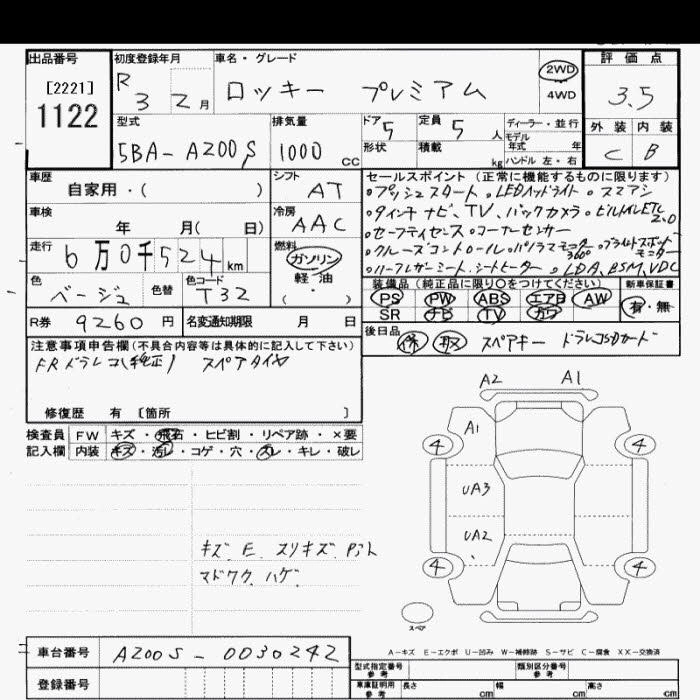 出品番号 [2221] 1122
初度登録年月 R 3 2月
車名・グレード ロッキー プレミアム
2WD
4WD
評価点 3.5
外装 C 内装 B
型式 5BA-A200S
排気量 1000 cc
ドア 5 形状
定員 5 人 積載 kg
ディーラー・並行
モデル年式 年
ハンドル 左・右
車歴 自家用・( )
シフト AT
車検 年 月( 日)
冷房 AAC
走行 6万0千524km
燃料 ガソリン
軽・油
( )
色 ベージュ 色替 色コード T32
R券 9260 円 名変通知期限 月 日
セールスポイント (正常に機能するものに限ります)
・プッシュスタート ・LEDヘッドライト ・スマアシ
・9インチナビ、TV、バックカメラ ・ビルトインETC2.0
・セーフティセンス ・コーナーセンサー
・クルーズコントロール ・パノラマモニター 360° ・ブラインドスポットモニター
・ハーフレザーシート、シートヒーター ・LDA、BSM、VDC
装備品(純正品に限り○をつけてください) 新車保証書
PS PW ABS エアB AW 有・無
SR ナビ TV カワ
後日品 保 取 スペアキー ドラレコSDカード
注意事項申告欄(不具合内容等は具体的に記入して下さい)
FRドラレコ(純正) スペアタイヤ
修復歴 有 〔箇所 〕
検査員 FW キズ・飛石・ヒビ割・リペア跡・×要
記入欄 内装 キズ・汚レ・コゲ・穴・スレ・キレ・破レ
キズ E スリキズ
マドワク ハゲ
A2 A1
A1
4 4
UA3
UA2
4 4
スペア
A-キズ E-エクボ U-凹み W-補修跡 S-サビ C-腐食 XX-交換済
車台番号 A200S-0030242
登録番号
型式指定番号 参考 類別区分番号 参考
車庫証明用 参考 長さ cm 幅 cm 高さ cm